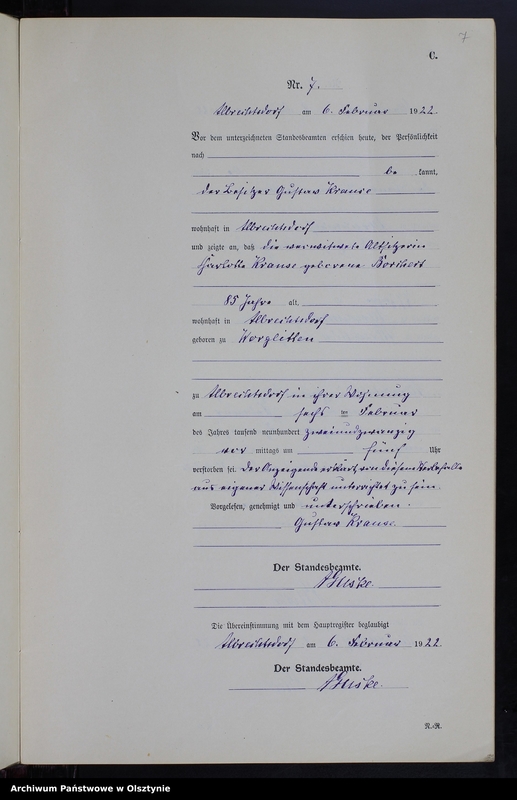 7
C.
Nr. 7.
Albrechtsdorf am 6. Februar 1922.
Vor dem unterzeichneten Standesbeamten erschien heute, der Persönlichkeit
nach
be kannt,
der Besitzer Gustav Krause
wohnhaft in Albrechtsdorf
und zeigte an, daß die verwitwete Altsitzerin
Charlotte Krause geborene Borchert
85 Jahre alt,
wohnhaft in Albrechtsdorf
geboren zu Worglitten
zu Albrechtsdorf in ihrer Wohnung
am sechs ten Februar
des Jahres tausend neunhundert zweiundzwanzig
vor mittags um fünf Uhr
verstorben sei. Der Anzeigende erklärt, von diesem Sterbefalle
aus eigener Wissenschaft unterrichtet zu sein.
Vorgelesen, genehmigt und unterschrieben.
Gustav Krause
Der Standesbeamte.
Die Übereinstimmung mit dem Hauptregister beglaubigt
Albrechtsdorf am 6. Februar 1922.
Der Standesbeamte.
N.-R.
Archiwum Państwowe w Olsztynie